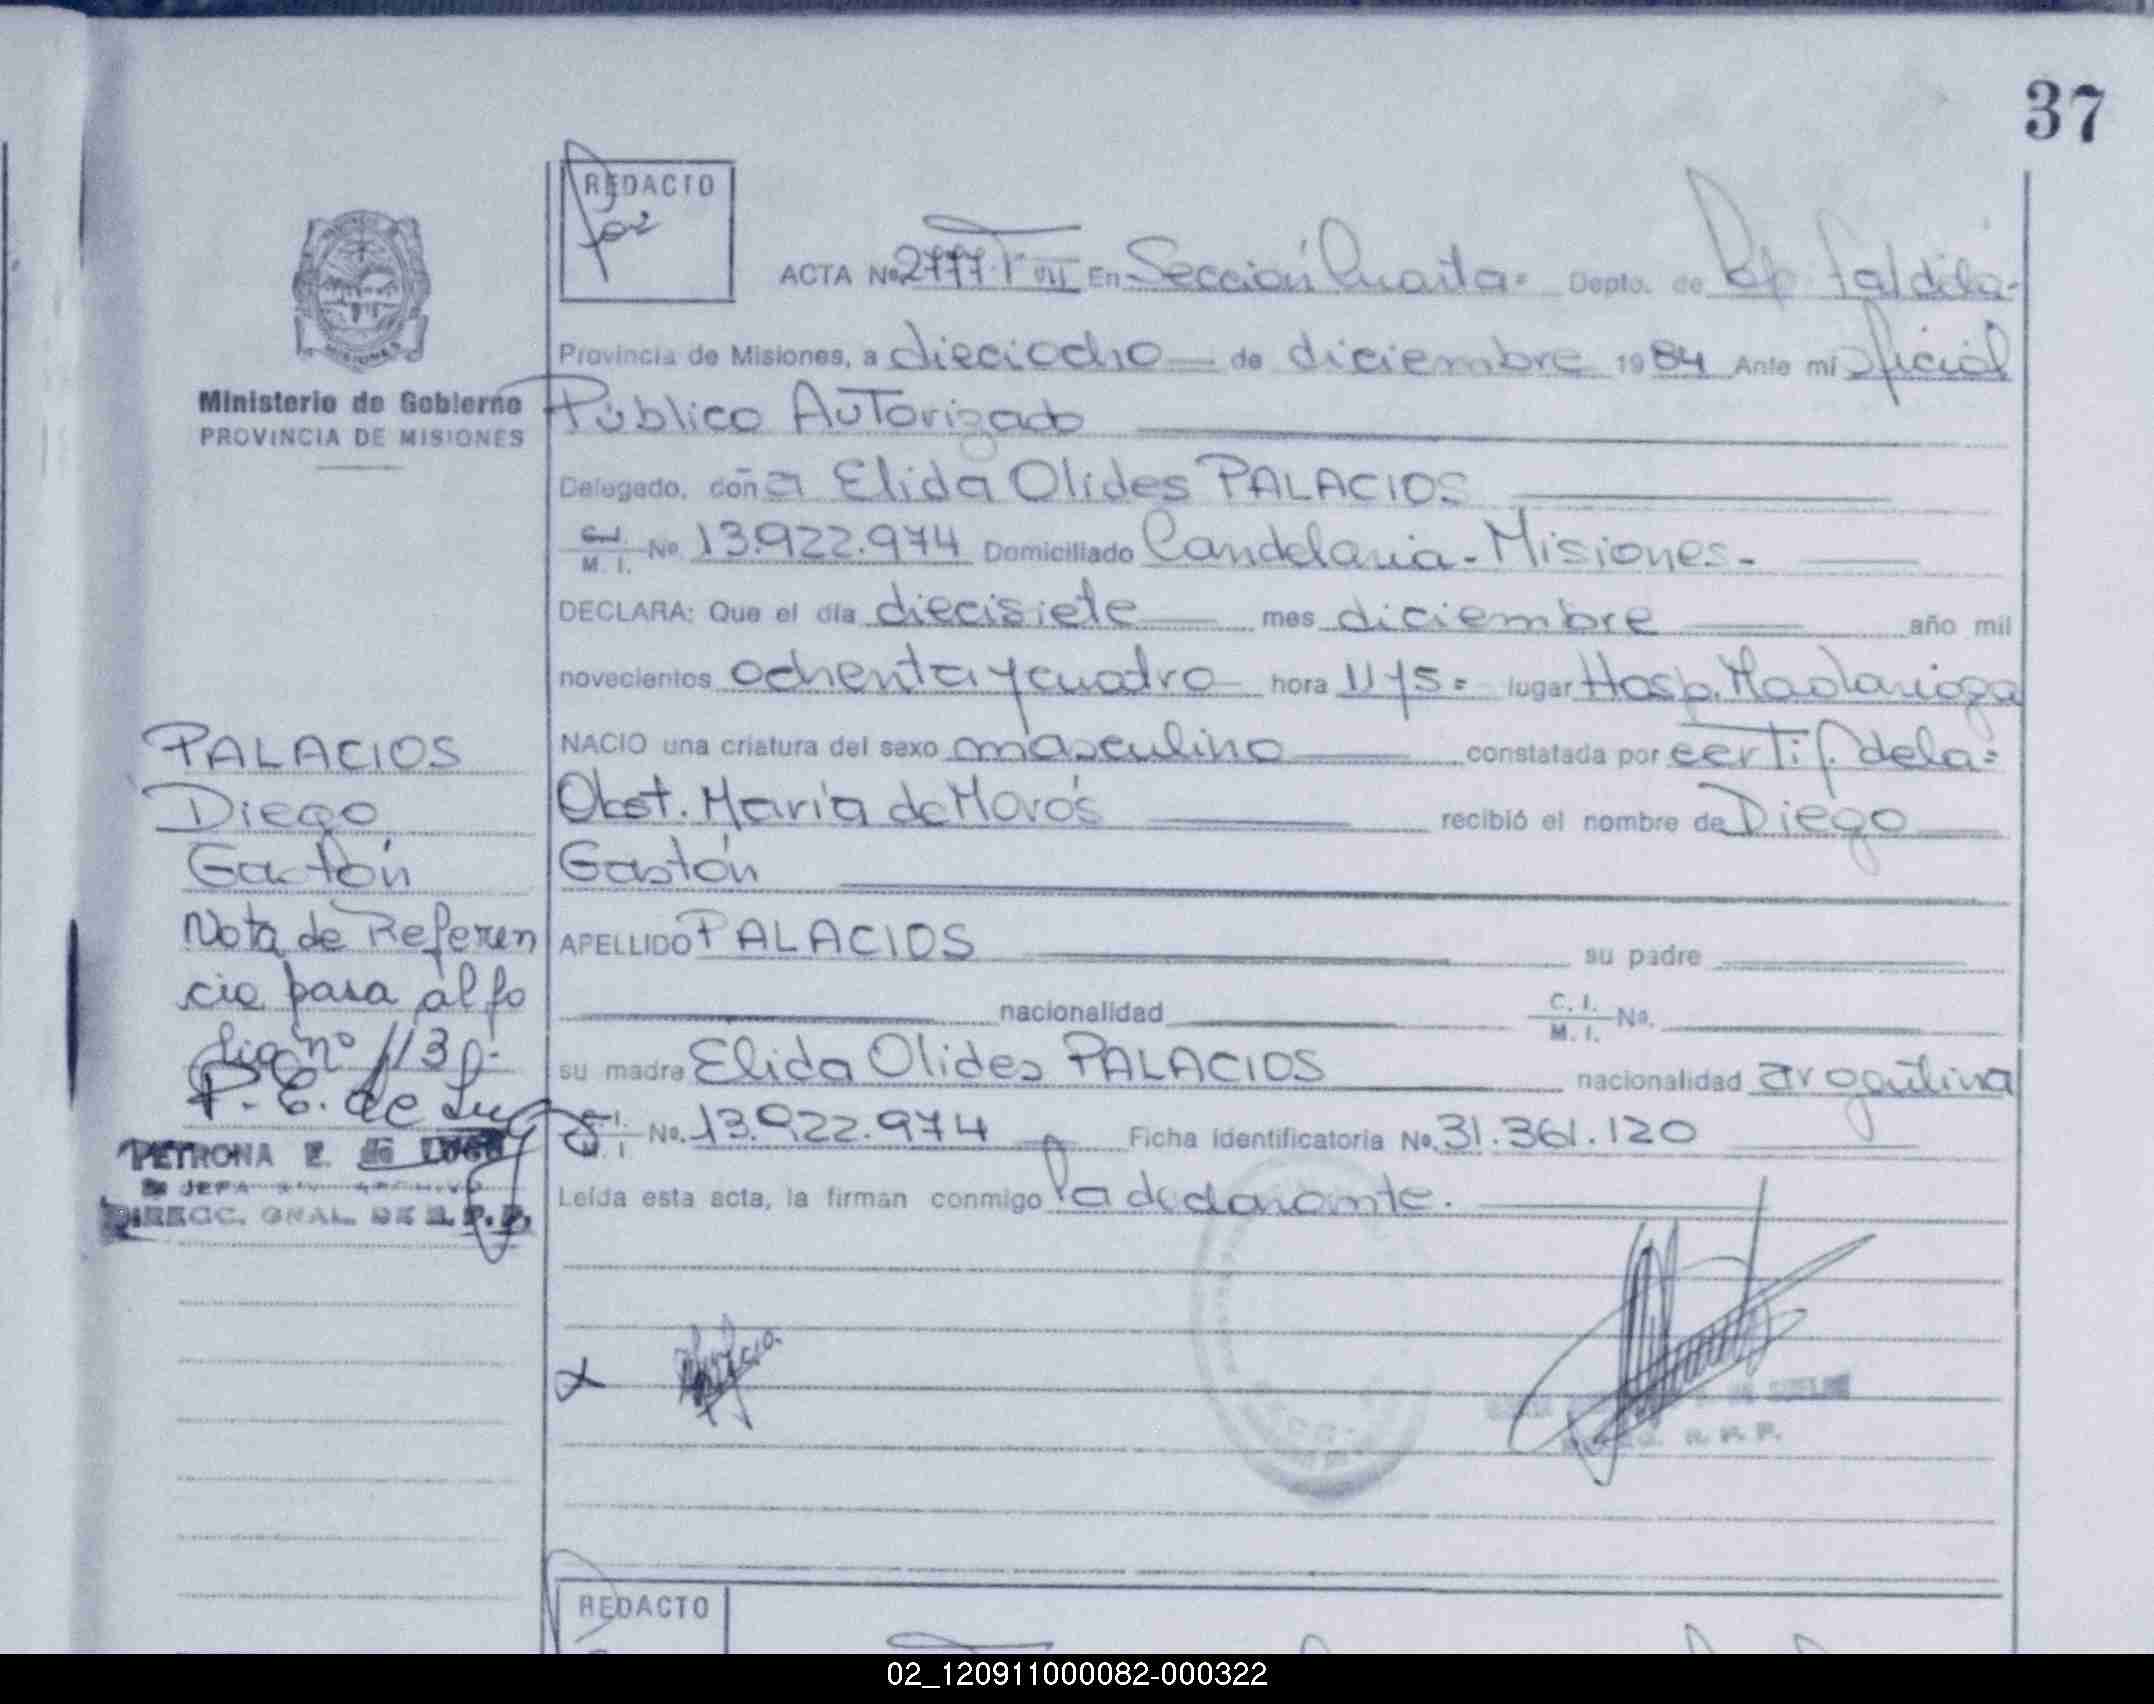 37
REDACTO
ACTA Nº 2777 Tº VII En Sección Cuarta- Depto. de
Provincia de Misiones, a dieciocho de diciembre 1984 Ante mí Oficial
MISIONES
Ministerio de Gobierno
PROVINCIA DE MISIONES
Público Autorizado
Delegado, doña Elida Olides PALACIOS
C.I. M. I. Nº 13.922.974 Domiciliado Candelaria - Misiones -
DECLARA: Que el día diecisiete mes diciembre año mil
novecientos ochenta y cuatro hora 11 y 5 = lugar Hosp. Madariaga
NACIO una criatura del sexo masculino constatada por certif. de la =
Obst. María de Horos recibió el nombre de Diego
Gastón
APELLIDO PALACIOS su padre
nacionalidad C. I. M. I. Nº.
su madre Elida Olides PALACIOS nacionalidad argentina
C.I. M. I Nº. 13.922.974 Ficha identificatoria Nº. 31.361.120
Leída esta acta, la firman conmigo la declarante.
PALACIOS
Diego
Gastón
Nota de Referen
cia pasa al fo
lio nº 113
P. E. de Lugo
PETRONA E. de LUGO
JEFA DIV. ARCHIVO
DIRECC. GRAL. DE R. P. P.
R. P. P.
REDACTO
02_120911000082-000322